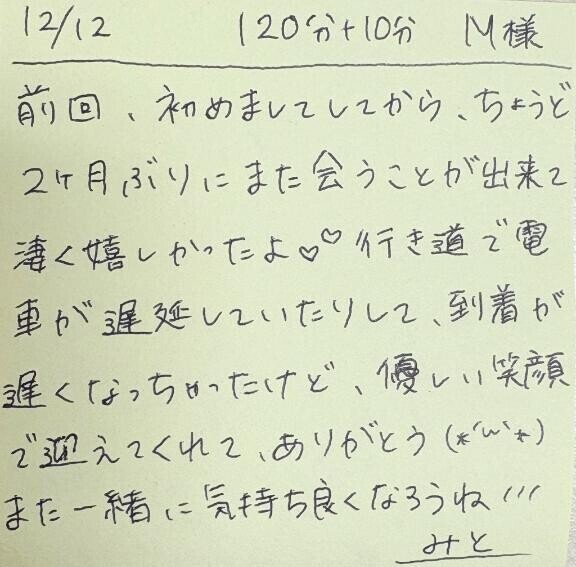 12/12 120分+10分 M様
前回、初めましてしてから、ちょうど
2ヶ月ぶりにまた会うことが出来て
凄く嬉しかったよ♡♡行き道で電
車が遅延していたりして、到着が
遅くなっちゃったけど、優しい笑顔
で迎えてくれて、ありがとう(*´ω`*)
また一緒に気持ち良くなろうね!!!
みと